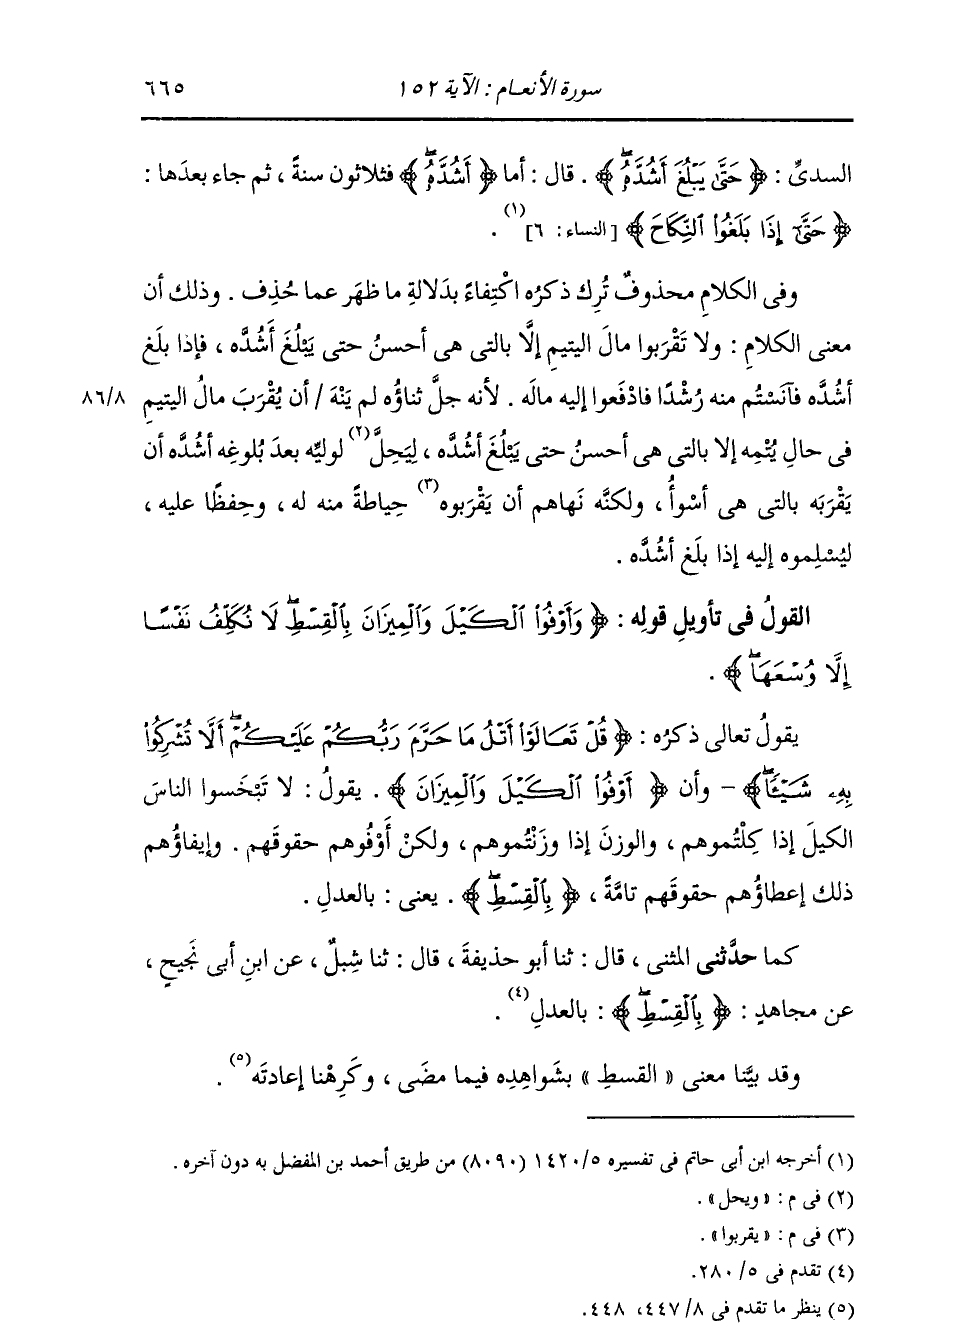 سورة الأنعام : الآية ١٥٢ ٦٦٥
السدىِّ : ﴿ حَتَّىٰ يَبْلُغَ أَشُدَّهُۥ ﴾ . قال : أما ﴿ أَشُدَّهُۥ ﴾ فثلاثون سنةً ، ثم جاء بعدَها :
﴿ حَتَّىٰٓ إِذَا بَلَغُوا۟ ٱلنِّكَاحَ ﴾ [النساء: ٦] (١) .
وفى الكلامِ محذوفٌ تُرِك ذكرُه اكْتِفاءً بدَلالةِ ما ظهَر عما حُذِف . وذلك أن
معنى الكلامِ : ولا تَقْرَبوا مالَ اليتيمِ إلَّا بالتى هى أحسنُ حتى يَبْلُغَ أَشُدَّه ، فإذا بلَغ
أشُدَّه فآنَسْتُم منه رُشْدًا فادْفَعوا إليه مالَه . لأنه جلَّ ثناؤُه لم يَنْهَ / أن يُقْرَبَ مالُ اليتيمِ ٨٦/٨
فى حالِ يُتْمِه إلا بالتى هى أحسنُ حتى يَبْلُغَ أشُدَّه ، لِيَحِلَّ (٢) لوليِّه بعدَ بُلوغِه أشُدَّه أن
يَقْرَبَه بالتى هى أسْوأُ ، ولكنَّه نَهاهم أن يَقْرَبوه (٣) حِياطةً منه له ، وحِفظًا عليه ،
ليُسْلِموه إليه إذا بلَغ أشُدَّه .
القولُ فى تأويلِ قولِه : ﴿ وَأَوْفُوا۟ ٱلْكَيْلَ وَٱلْمِيزَانَ بِٱلْقِسْطِ لَا نُكَلِّفُ نَفْسًا
إِلَّا وُسْعَهَا ﴾ .
يقولُ تعالى ذكرُه : ﴿ قُلْ تَعَالَوْا۟ أَتْلُ مَا حَرَّمَ رَبُّكُمْ عَلَيْكُمْ أَلَّا تُشْرِكُوا۟
بِهِۦ شَيْـًٔا ﴾ - وأن ﴿ أَوْفُوا۟ ٱلْكَيْلَ وَٱلْمِيزَانَ ﴾ . يقولُ : لا تَبْخَسوا الناسَ
الكيلَ إذا كِلْتُموهم ، والوزنَ إذا وزَنْتُموهم ، ولكنْ أَوْفُوهم حقوقَهم . وإيفاؤُهم
ذلك إعطاؤُهم حقوقَهم تامَّةً ، ﴿ بِٱلْقِسْطِ ﴾ . يعنى : بالعدلِ .
كما حدَّثنى المثنى ، قال : ثنا أبو حذيفةَ ، قال : ثنا شِبلٌ ، عن ابنِ أبى نَجيحٍ ،
عن مجاهدٍ : ﴿ بِٱلْقِسْطِ ﴾ : بالعدلِ (٤) .
وقد بيَّنا معنى « القسطِ » بشَواهِدِه فيما مضَى ، وكَرِهْنا إعادتَه (٥) .
(١) أخرجه ابن أبى حاتم فى تفسيره ١٤٢٠/٥ (٨٠٩٠) من طريق أحمد بن المفضل به دون آخره .
(٢) فى م : « ويحل » .
(٣) فى م : « يقربوا » .
(٤) تقدم فى ٢٨٠/٥ .
(٥) ينظر ما تقدم فى ٤٤٧/٨، ٤٤٨ .